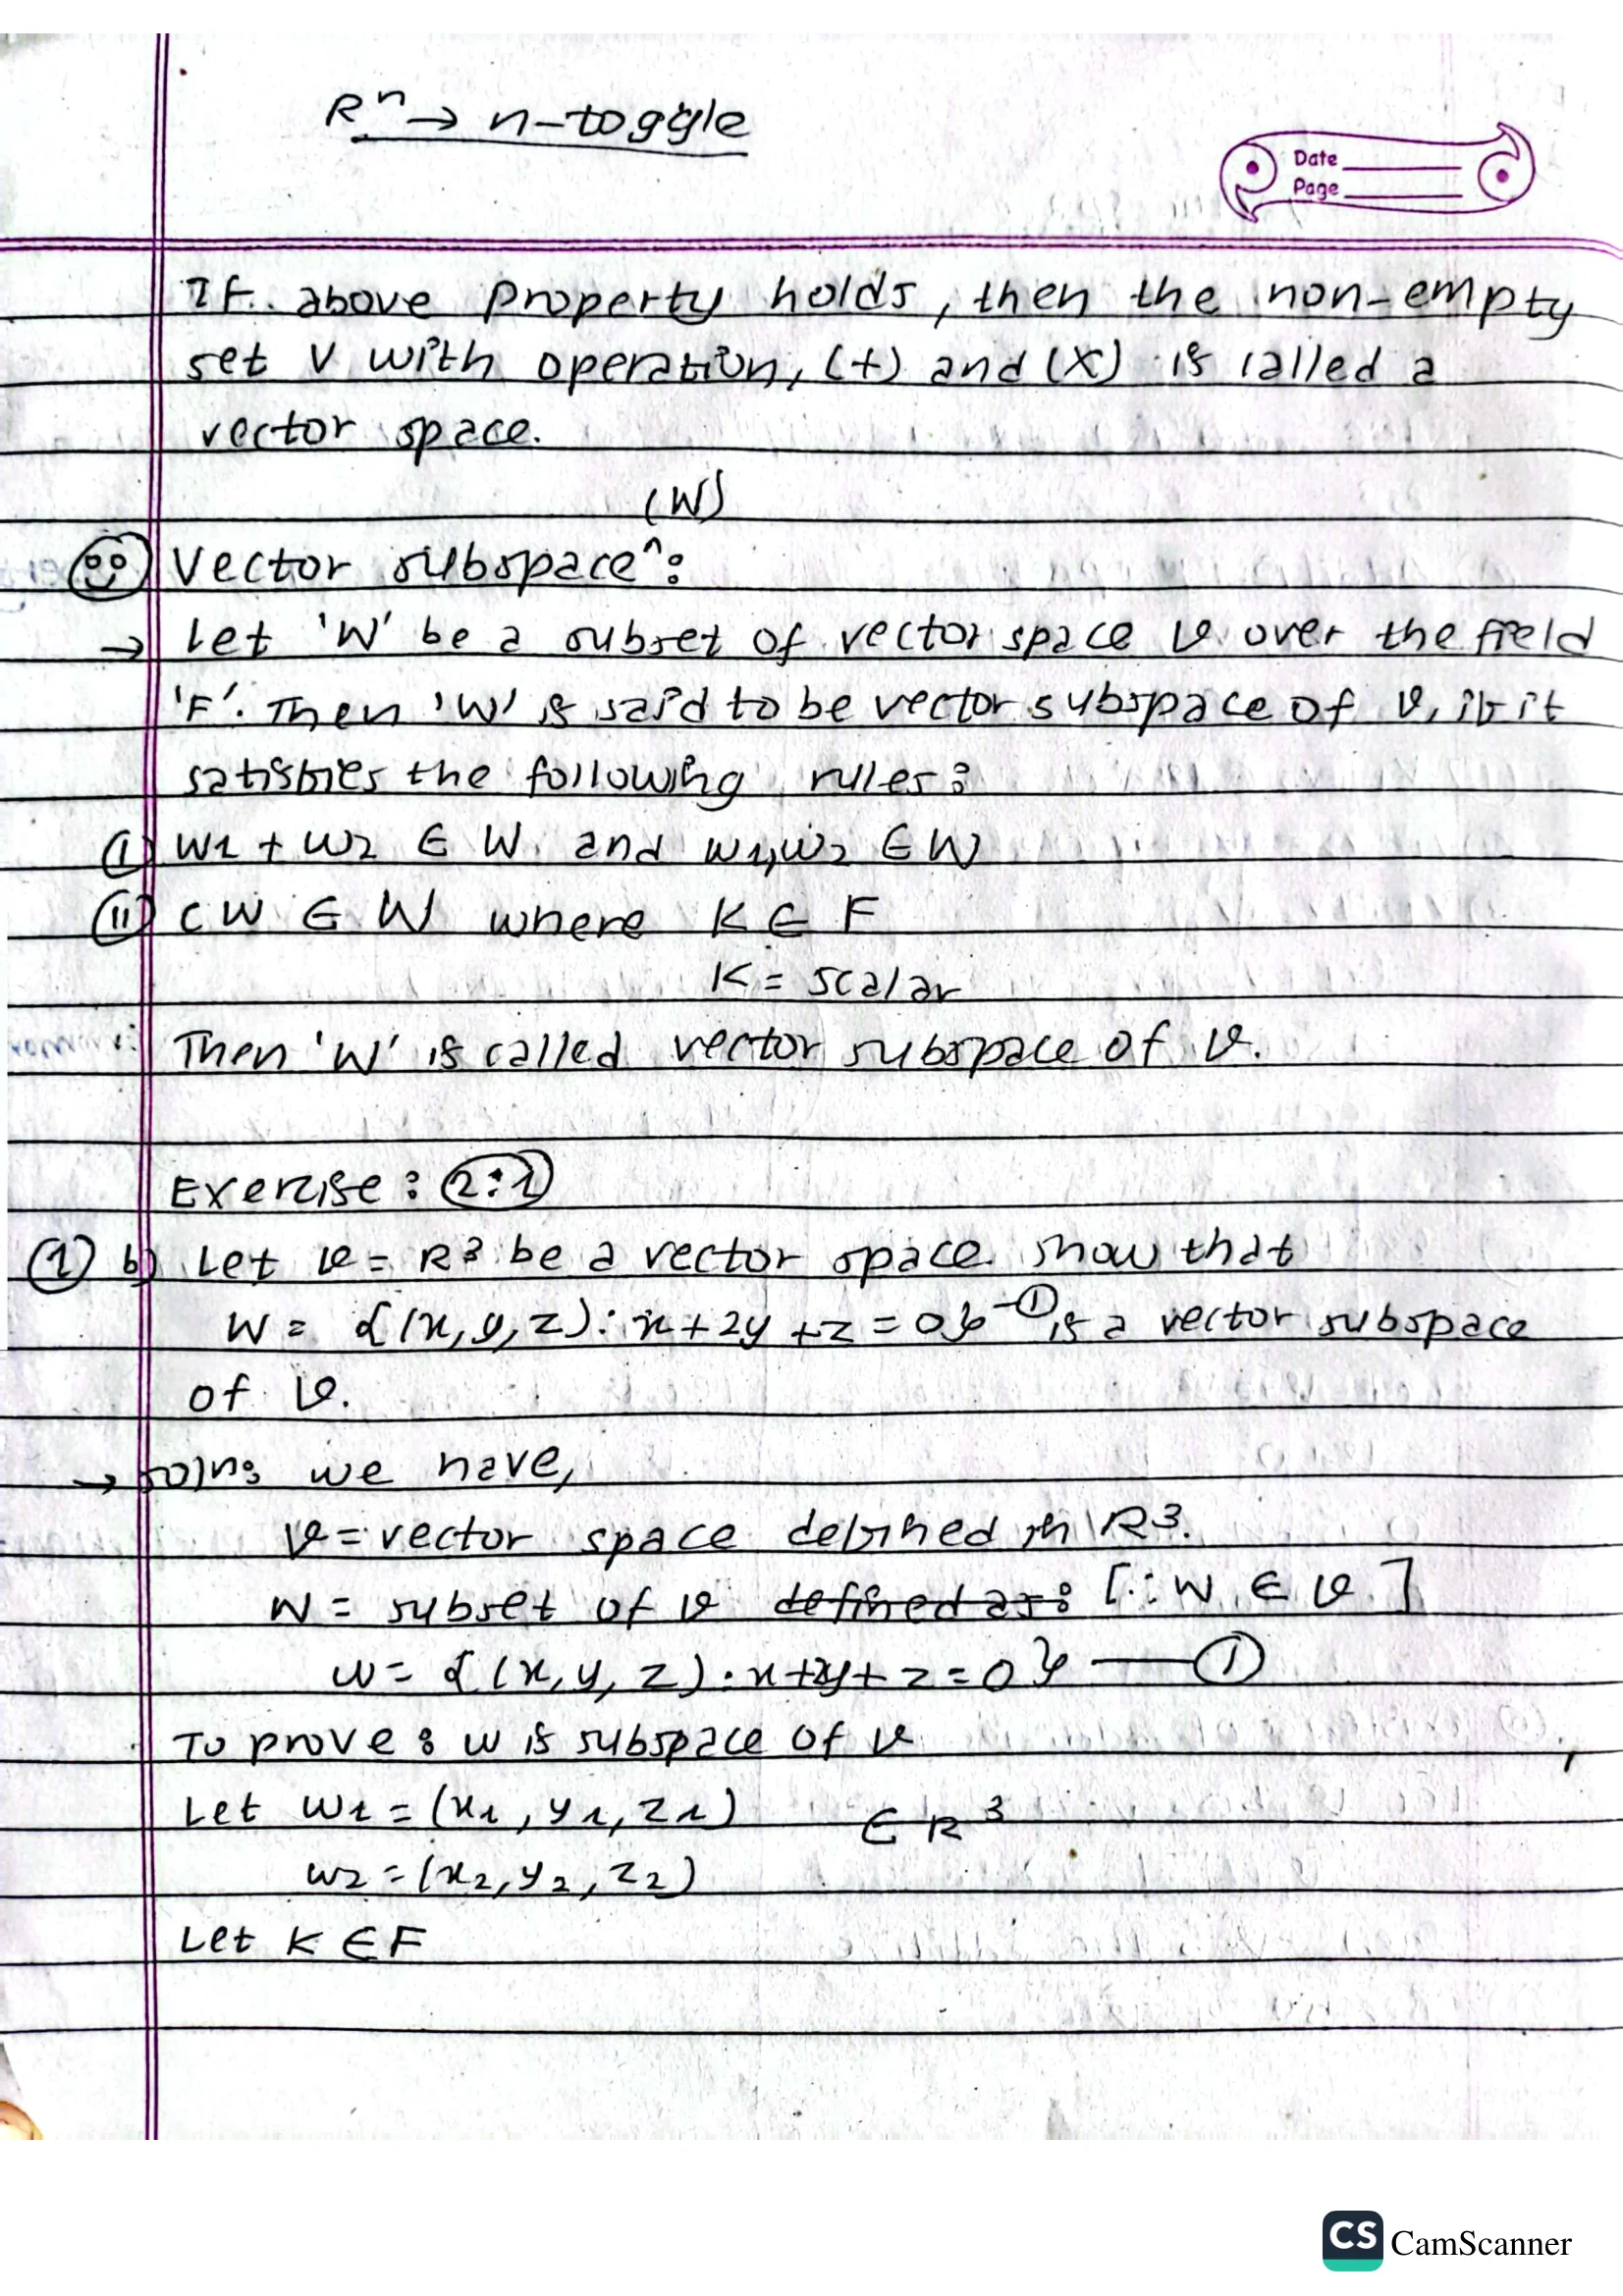 Rⁿ → n-toggle
Date
Page
If above property holds, then the non-empty
set V with operation, (+) and (x) is called a
vector space.
(W)
Vector subspace^:
→ Let 'W' be a subset of vector space V over the field
'F'. Then 'W' is said to be vector subspace of V, if it
satisfies the following rules:
(i) w1 + w2 ∈ W and w1, w2 ∈ W
(ii) cw ∈ W where K ∈ F
K = scalar
Then 'W' is called vector subspace of V.
Exercise: 2:1
(1) b) Let V = R³ be a vector space show that
W = {(x, y, z): x + 2y + z = 0} -① is a vector subspace
of V.
→ soln: we have,
V = vector space defined in R³.
W = subset of V defined as: [∵ W ∈ V]
W = {(x, y, z): x + 2y + z = 0} — ①
To prove: W is subspace of V
Let w1 = (x1, y1, z1) ∈ R³
w2 = (x2, y2, z2)
Let K ∈ F
CS CamScanner